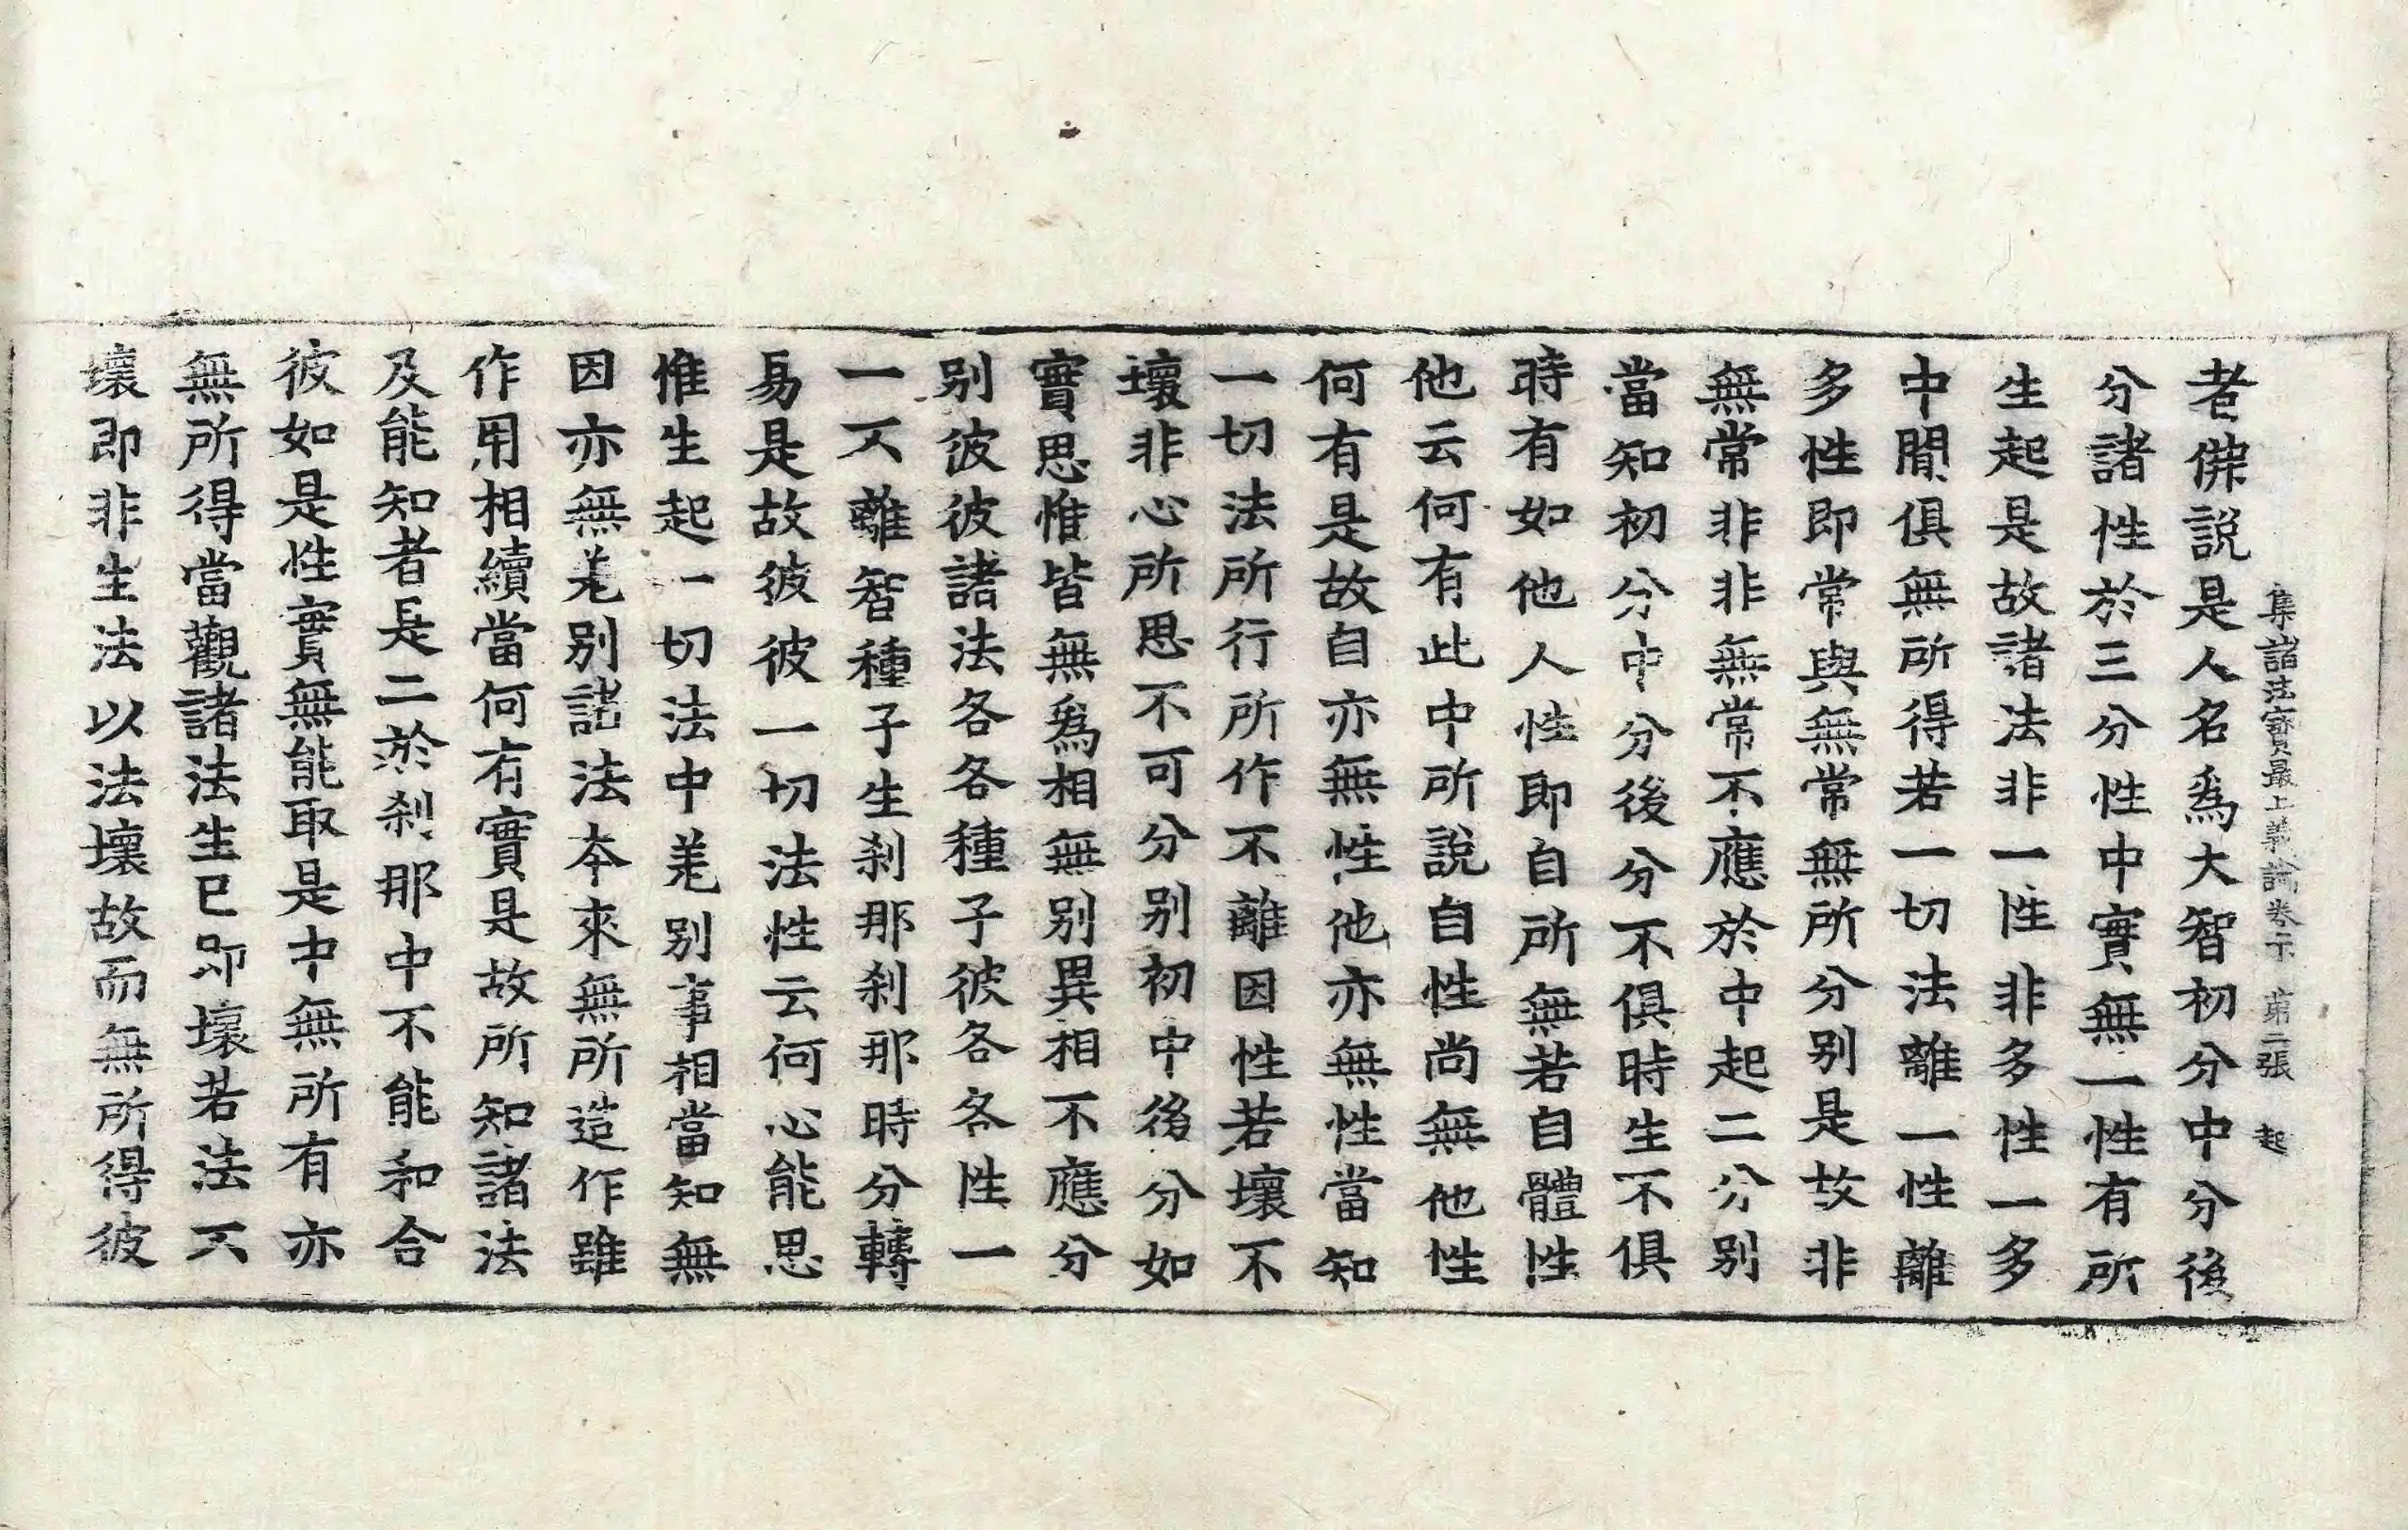 集諸法寶最上義論卷下 第二張 起
者佛說是人名爲大智初分中分後
分諸性於三分性中實無一性有所
生起是故諸法非一性非多性一多
中間俱無所得若一切法離一性離
多性即常與無常無所分別是故非
無常非非無常不應於中起二分別
當知初分中分後分不俱時生不俱
時有如他人性即自所無若自體性
他云何有此中所說自性尚無他性
何有是故自亦無性他亦無性當知
一切法所行所作不離因性若壞不
壞非心所思不可分別初中後分如
實思惟皆無爲相無別異相不應分
別彼彼諸法各各種子彼各各性一
一不離智種子生刹那刹那時分轉
易是故彼彼一切法性云何心能思
惟生起一切法中差別事相當知無
因亦無差別諸法本來無所造作雖
作用相續當何有實是故所知諸法
及能知者是二於刹那中不能和合
彼如是性實無能取是中無所有亦
無所得當觀諸法生已即壞若法不
壞即非生法以法壞故而無所得彼